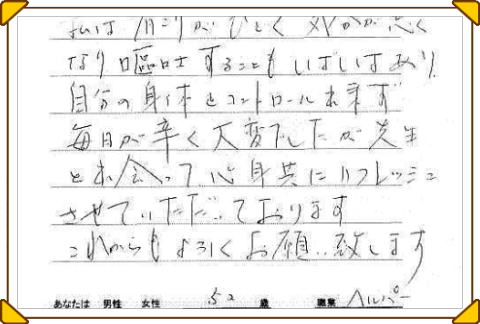 私は肩こりがひどく気分が悪く
なり嘔吐することもしばしばあり
自分の身体をコントロール出来ず
毎日が辛く大変でしたが先生
と出会って心身共にリフレッシュ
させていただいております
これからもよろしくお願い致します
あなたは 男性 女性 52 歳 職業 ヘルパー